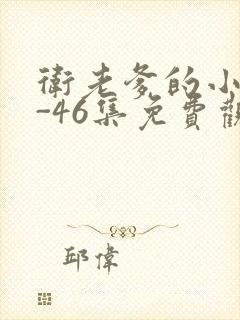 衛老爹的小
-46集免費觀
邱偉